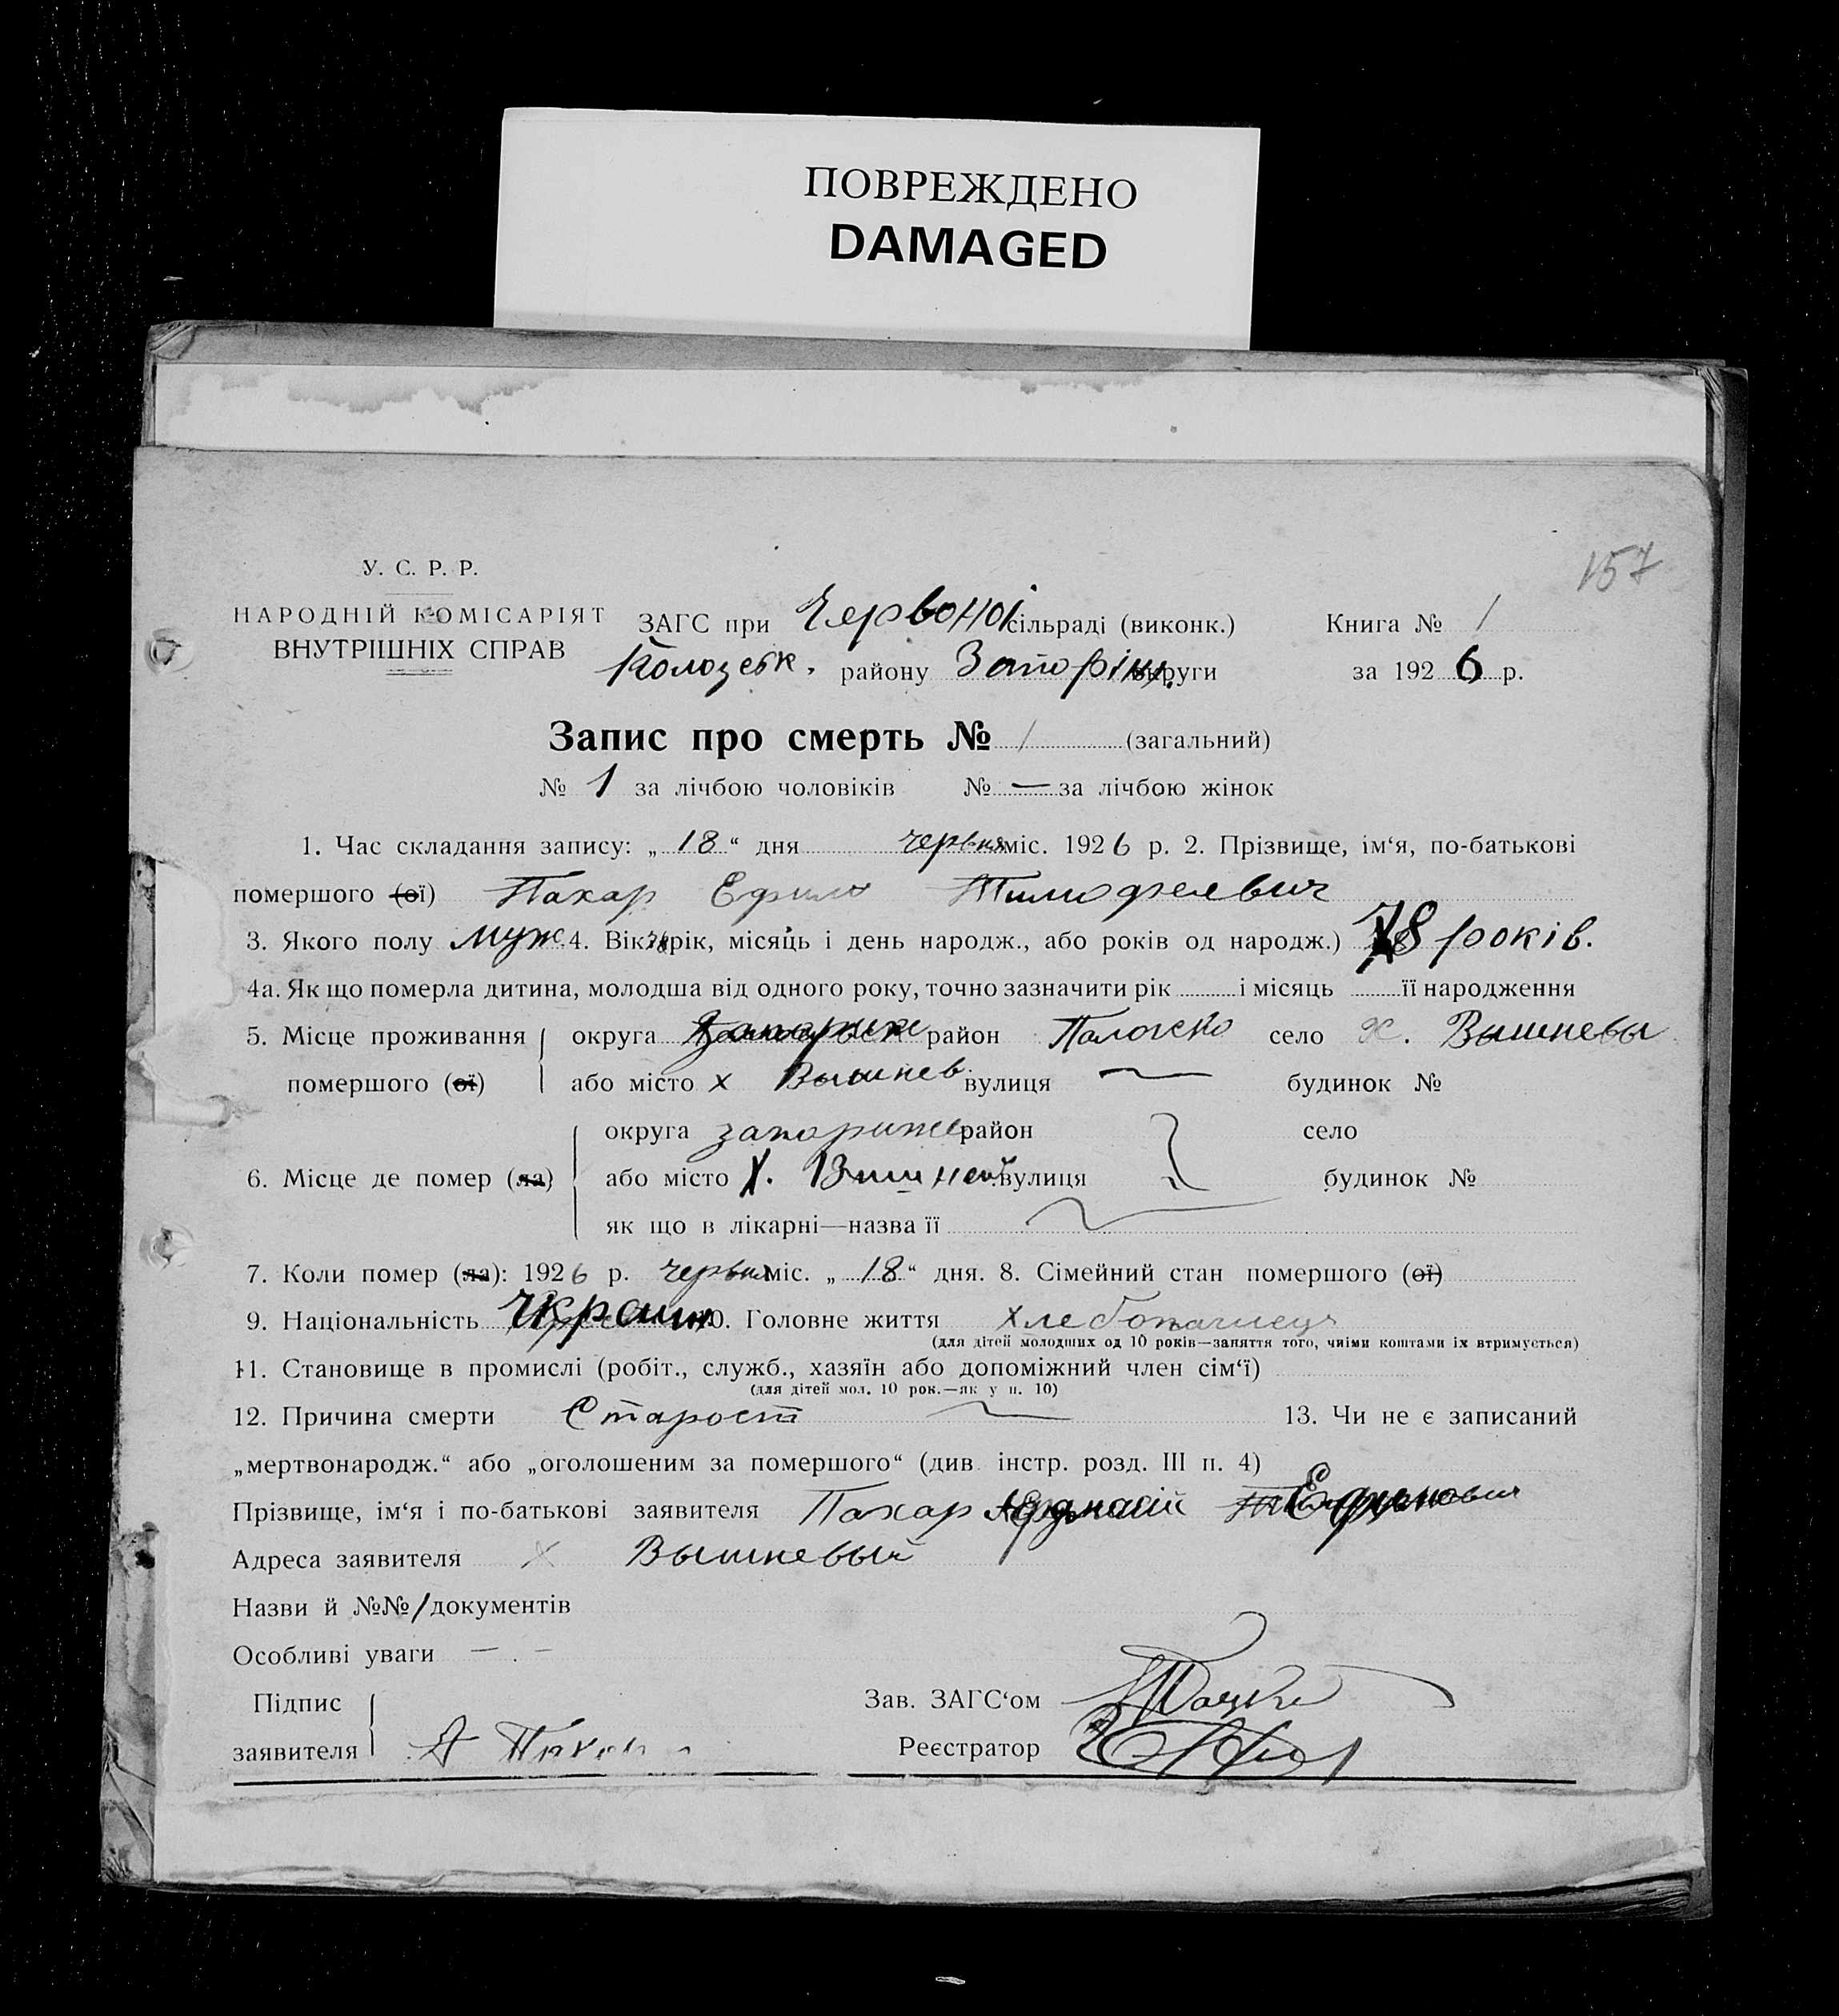 ПОВРЕЖДЕНО
DAMAGED
157
У. С. Р. Р.
НАРОДНІЙ КОМІСАРІЯТ
ВНУТРІШНІХ СПРАВ
ЗАГС при Червоної сільраді (виконк.) Книга № 1
району округи за 1926 р.
Запис про смерть № 1 (загальний)
№ 1 за лічбою чоловіків № — за лічбою жінок
1. Час складання запису: „18“ дня червня міс. 1926 р. 2. Прізвище, ім‘я, по-батькові
помершого (ої) Пахар Ефим Тимофеевич
3. Якого полу муж. 4. Вік рік, місяць і день народж., або років од народж.) 78 років.
4а. Як що померла дитина, молодша від одного року, точно зазначити рік і місяць її народження
5. Місце проживання округа район село Х. Вышневы
помершого (ої) або місто х Вышнев. вулиця — будинок №
округа запориже район село
6. Місце де помер (ла) або місто Х. вулиця будинок №
як що в лікарні—назва її
7. Коли помер (ла): 1926 р. червня міс. „18“ дня. 8. Сімейний стан помершого (ої)
9. Національність Украин 10. Головне життя
(для дітей молодших од 10 років—заняття того, чиїми коштами їх втримується)
11. Становище в промислі (робіт., служб., хазяїн або допоміжний член сім‘ї)
(для дітей мол. 10 рок.—як у п. 10)
12. Причина смерти Старост 13. Чи не є записаний
„мертвонародж.“ або „оголошеним за помершого“ (див. інстр. розд. III п. 4)
Прізвище, ім‘я і по-батькові заявителя Пахар Ефимович
Адреса заявителя х Вышневый
Назви й №№/документів
Особливі уваги — . —
Підпис Зав. ЗАГС‘ом
заявителя Реєстратор